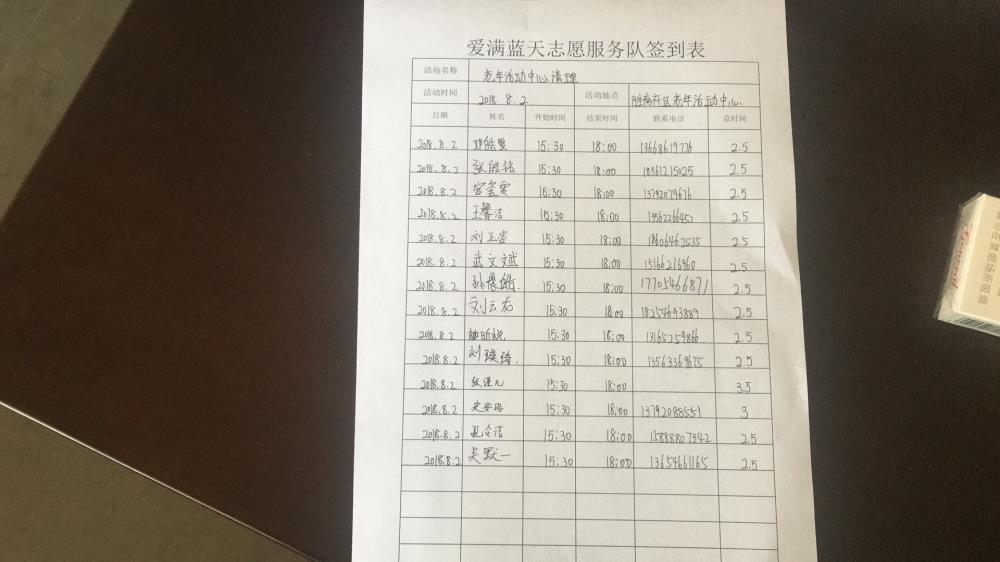 爱满蓝天志愿服务队签到表
活动名称 老年活动中心清理
活动时间 2018.8.2 活动地点 胜南社区老年活动中心.
日期 姓名 开始时间 结束时间 联系电话 总时间
2018.8.2 邓皓 15:30 18:00 13668619776 2.5
2018.8.2 张皓铭 15:30 18:00 18561215025 2.5
2018.8.2 宫玺雯 15:30 18:00 13792079676 2.5
2018.8.2 王馨洁 15:30 18:00 2.5
2018.8.2 刘玉 15:30 18:00 18606462535 2.5
2018.8.2 武文斌 15:30 18:00 15166216960 2.5
2018.8.2 孙晨皓. 15:30 18:00 17705466871 2.5
2018.8.2 刘云龙 15:30 18:00 18254693889 2.5
2018.8.2 昕悦 15:30 18:00 13165259866 2.5
2018.8.2 刘瑛琦. 15:30 18:00 13563369675 2.5
2018.8.2 张 15:30 18:00 3.5
2018.8.2 史安 15:30 18:00 13792088551 3
2018.8.2 孔令洁 15:30 18:00 15888807342 2.5
2018.8.2 吴默一 15:30 18:00 13654661165 2.5
General